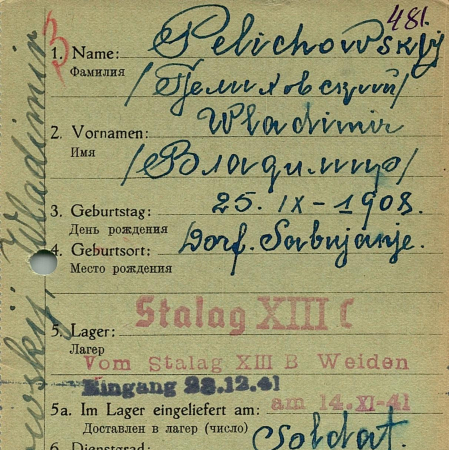 481.
3
1. Name: Pelichowskij
Фамилия /Пелиховский/
2. Vornamen: Wladimir
Имя /Владимир/
3. Geburtstag: 25. IX – 1908.
День рождения
4. Geburtsort: Dorf. Sabujanje.
Место рождения
Stalag XIII C
5. Lager:
Лагер
Vom Stalag XIII B Weiden
Eingang 23.12.41
am 14. XI-41
5a. Im Lager eingeliefert am:
Доставлен в лагер (число)
Soldat.
6. Dienstgrad:
owskij, Wladimir